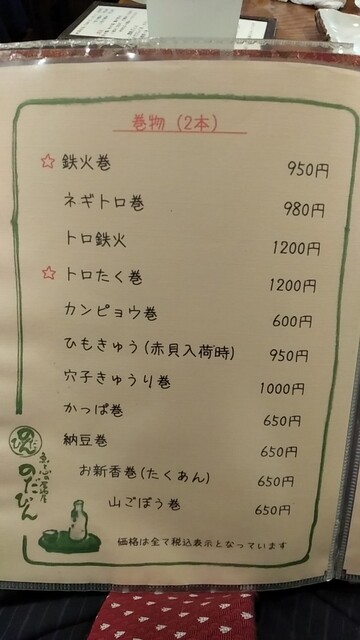 巻物(2本)
☆ 鉄火巻 950円
ネギトロ巻 980円
トロ鉄火 1200円
☆ トロたく巻 1200円
カンピョウ巻 600円
ひもきゅう(赤貝入荷時) 950円
穴子きゅうり巻 1000円
かっぱ巻 650円
納豆巻 650円
お新香巻(たくあん) 650円
山ごぼう巻 650円
のだびん
価格は全て税込表示となっています